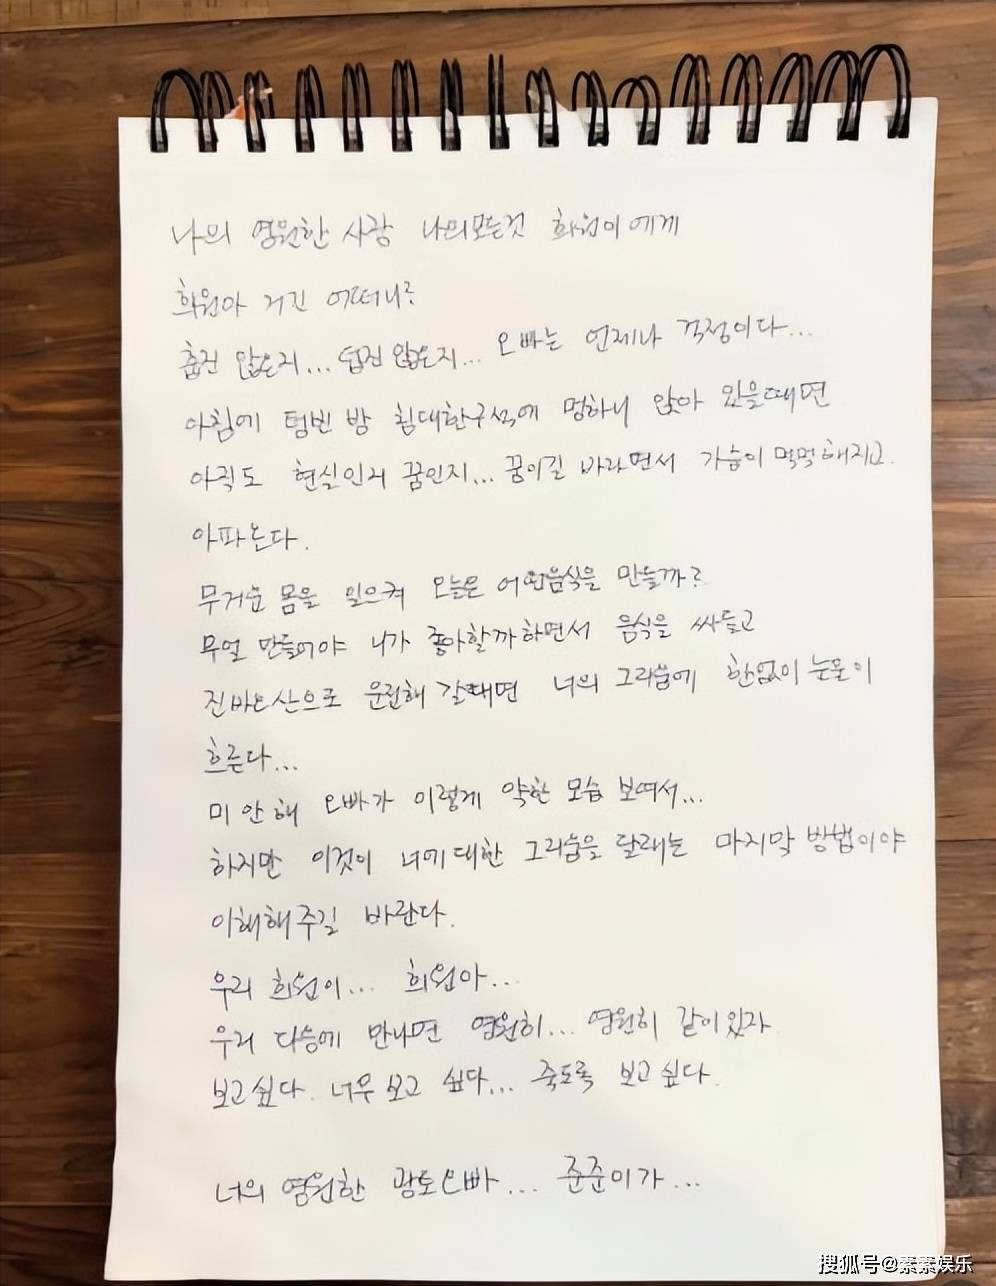 나의 영원한 사랑 나의모든것 희원이에게
희원아 거긴 어떠니?
춥진 않은지... 덥진 않은지... 오빠는 언제나 걱정이다...
아침에 텅빈 방 침대한구석에 멍하니 앉아 있을때면
아직도 현실인지 꿈인지... 꿈이길 바라면서 가슴이 먹먹해지고
아파온다.
무거운 몸을 일으켜 오늘은 어떤음식을 만들까?
무얼 만들어야 니가 좋아할까하면서 음식을 싸들고
진바오산으로 운전해 갈때면 너의 그리움에 한없이 눈물이
흐른다...
미안해 오빠가 이렇게 약한 모습 보여서...
하지만 이것이 너에대한 그리움을 달래는 마지막 방법이야
이해해주길 바란다.
우리 희원이... 희원아...
우리 다음에 만나면 영원히... 영원히 같이있자
보고싶다. 너무 보고 싶다... 죽도록 보고싶다.
너의 영원한 광토오빠... 준준이가...
搜狐号@素素娱乐